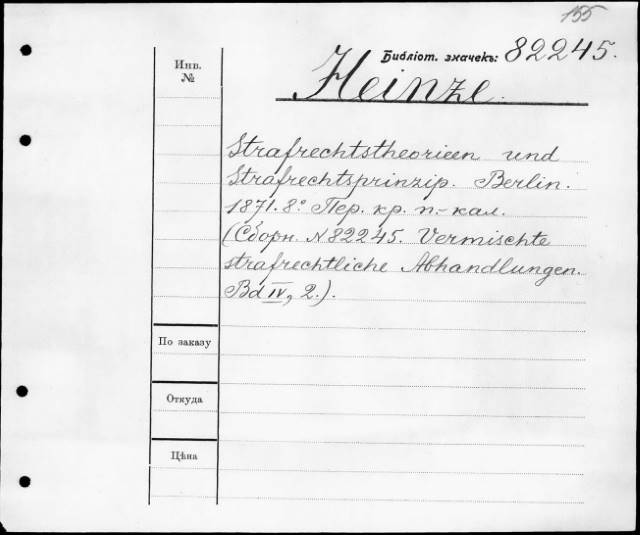 155
Библіот. значекъ: 82245.
Heinze.
Инв.
№
Strafrechtstheorieen und
Strafrechtsprinzip. Berlin.
1871. 8° Пер. кр. п.-кал.
(Сборн. №82245. Vermischte
strafrechtliche Abhandlungen.
Bd IV, 2.).
По заказу
Откуда
Цѣна